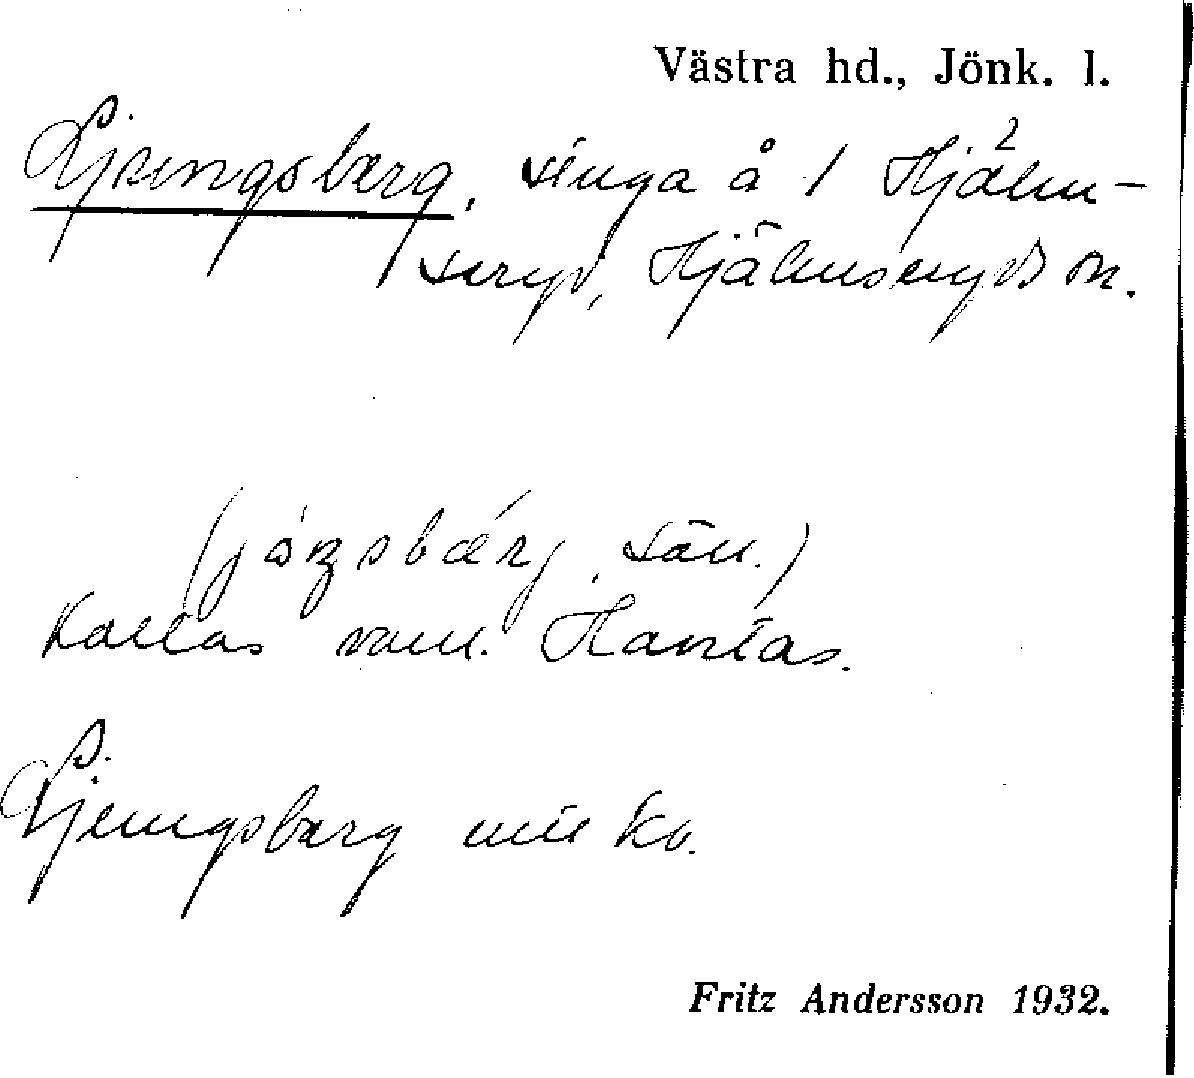 Västra hd., Jönk. l.
Ljungsberg, stuga å 1 Hjälm-
seryd, Hjälmseryds sn.
sän.)
Kallas vanl. Hantas.
Ljungsberg utt. ko.
Fritz Andersson 1932.